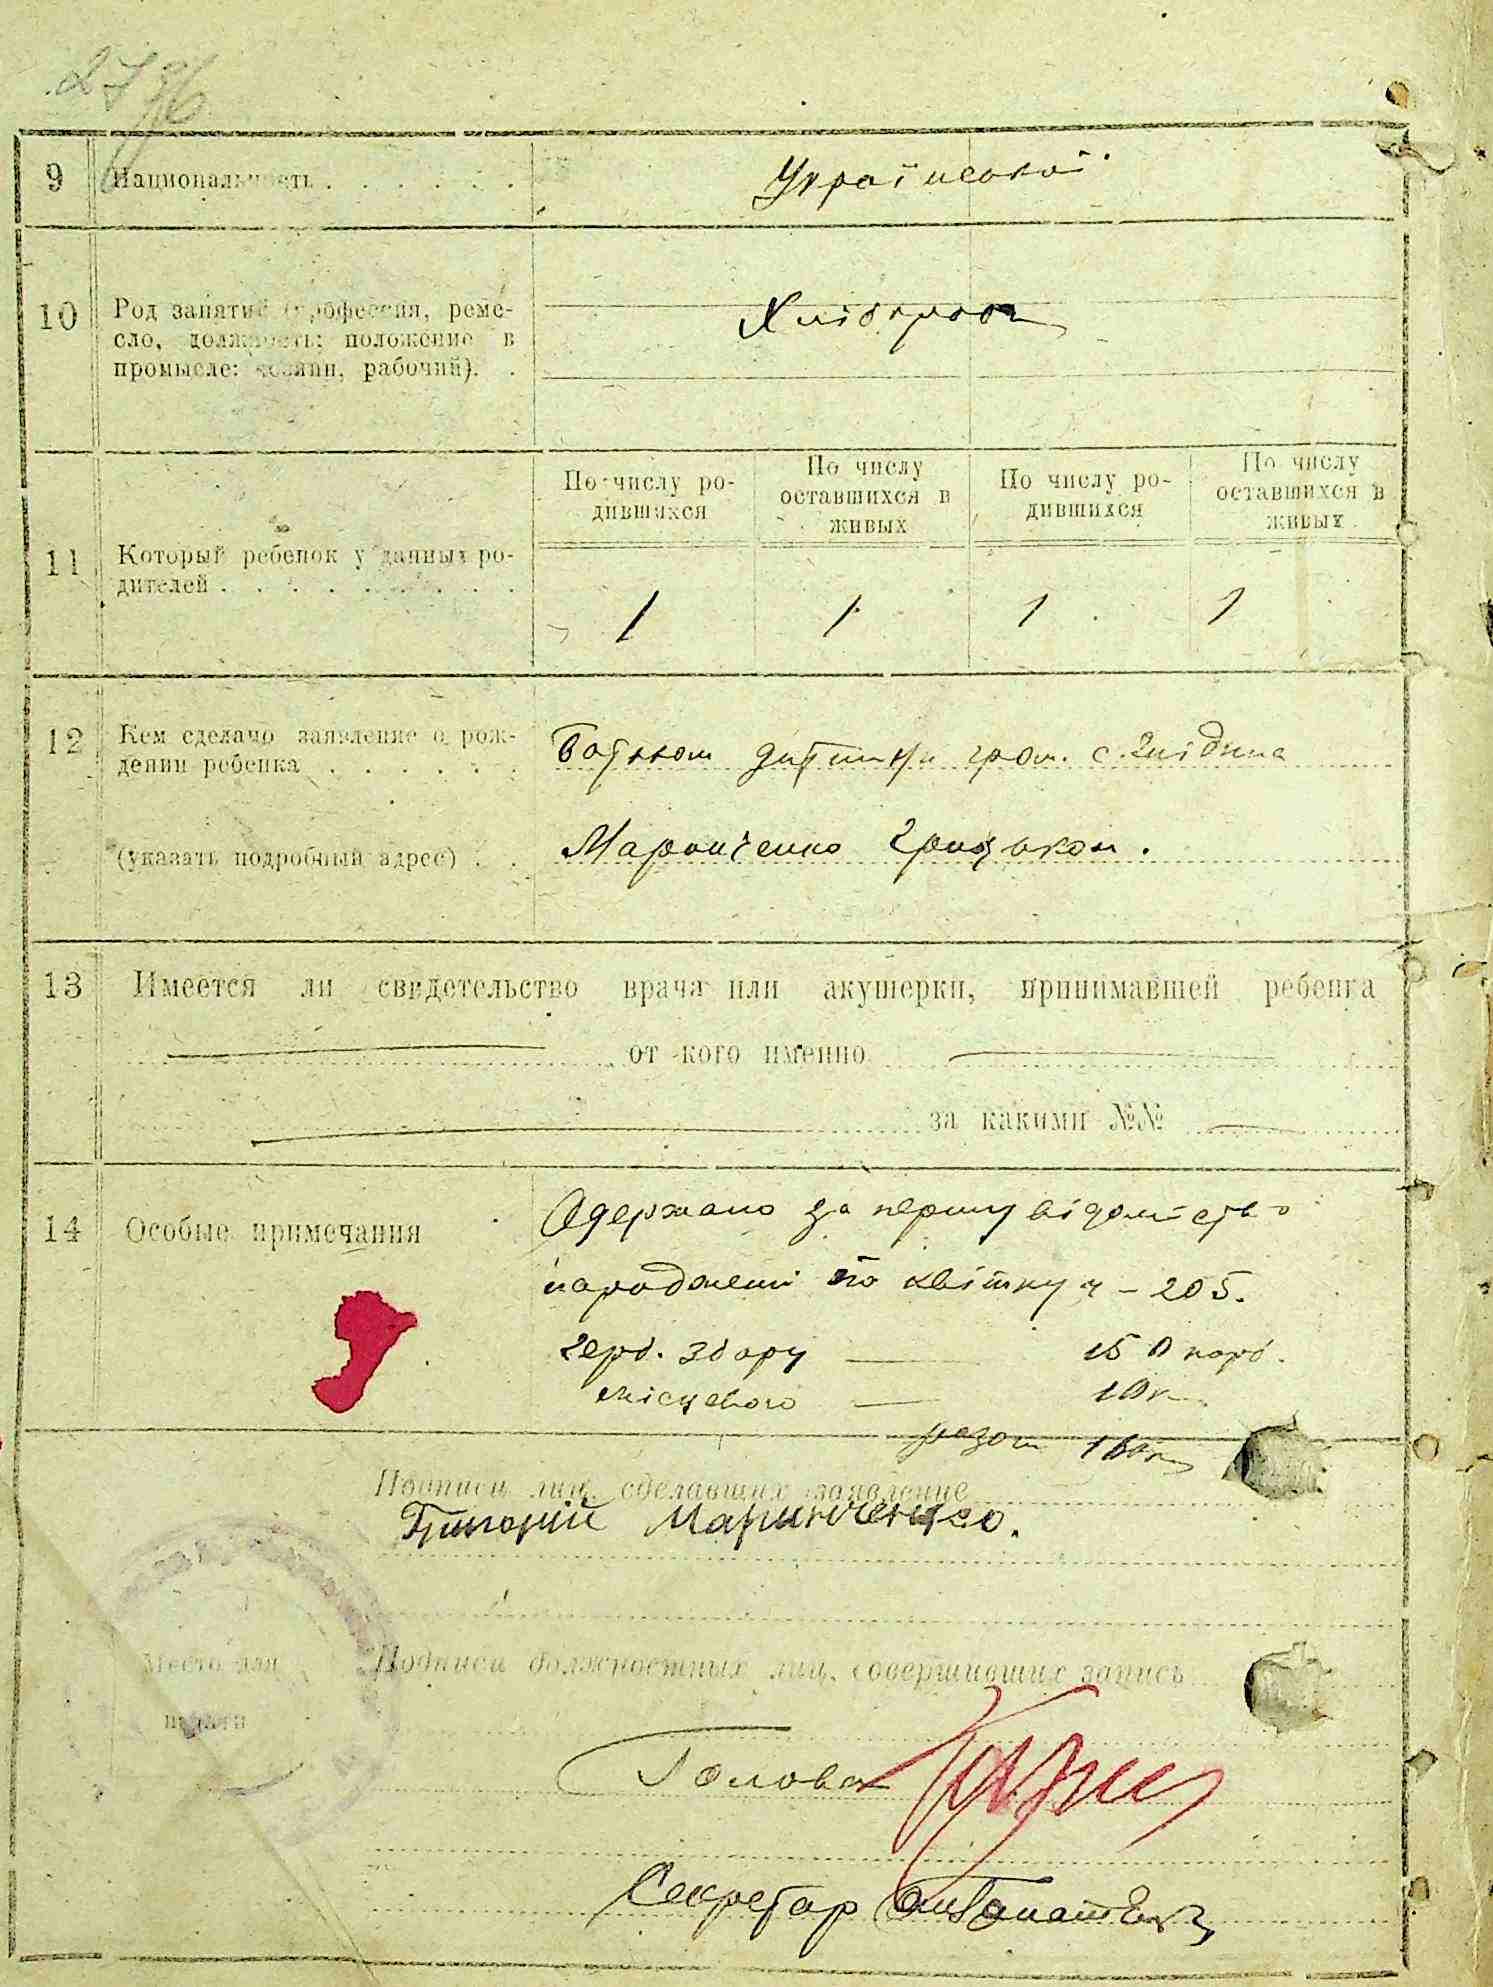 2796
9 Национальность . . . . . . Української
10 Род занятий (профессия, реме-
сло, должность; положение в
промысле: хозяин, рабочий). . Хлібороби
11 Который ребенок у данных ро-
дителей . . . . . . . . .
По числу ро-
дившихся
По числу
оставшихся в
живых
По числу ро-
дившихся
По числу
оставшихся в
живых
1 1 1 1
12 Кем сделано заявление о рож-
дении ребенка . . . . . . Батьком дитинки гром. с.
(указать подробный адрес) . . Маринченко Грицьком.
13 Имеется ли свидетельство врача или акушерки, принимавшей ребенка
от кого именно
за какими №№
14 Особые примечания Одержано за першу відомість о
народженні по квітку ч – 205.
герб. збору — 150 карб.
місцевого — 10к
разом 160к
Подписи лиц, сделавших заявление
Григорій Маринченко.
Место для
печати
Подписи должностных лиц, совершивших запись
Голова
Секретар